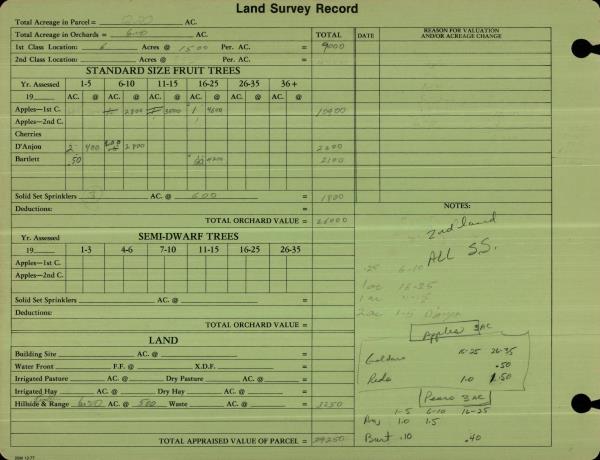 Land Survey Record
Total Acreage in Parcel = AC.
Total Acreage in Orchards = 6.0 AC. TOTAL DATE REASON FOR VALUATION AND/OR ACREAGE CHANGE
1st Class Location: 6 Acres @ 1500 Per. AC. = 9000
2nd Class Location: Acres @ Per. AC. =
STANDARD SIZE FRUIT TREES
Yr. Assessed 1-5 6-10 11-15 16-25 26-35 36+
19 AC. @ AC. @ AC. @ AC. @ AC. @ AC. @
Apples—1st C. 2800 1 4600 10400
Apples—2nd C.
Cherries
D'Anjou 2 400 2800
Bartlett .50 2100
Solid Set Sprinklers 3 AC. @ 600 = 1800
Deductions: =
TOTAL ORCHARD VALUE = 26000
NOTES:
2nd land
ALL S.S.
SEMI-DWARF TREES
Yr. Assessed
19 1-3 4-6 7-10 11-15 16-25 26-35
Apples—1st C.
Apples—2nd C.
.25 6-10
1 ac 16-25
1 ac
2 ac 1-5
Solid Set Sprinklers AC. @ =
Deductions:
TOTAL ORCHARD VALUE =
Apples 3AC
Goldens 16-25 26-35
.50
Reds 1.0 1.50
Pears 3 AC
1-5 6-10 16-25
Anj 1.0 1.5
Bart .10 .40
LAND
Building Site AC. @ =
Water Front F.F. @ X.D.F. =
Irrigated Pasture AC. @ Dry Pasture AC. @ =
Irrigated Hay AC. @ Dry Hay AC. @ =
Hillside & Range 6.50 AC. @ 500 Waste AC. @ = 3250
TOTAL APPRAISED VALUE OF PARCEL = 29250